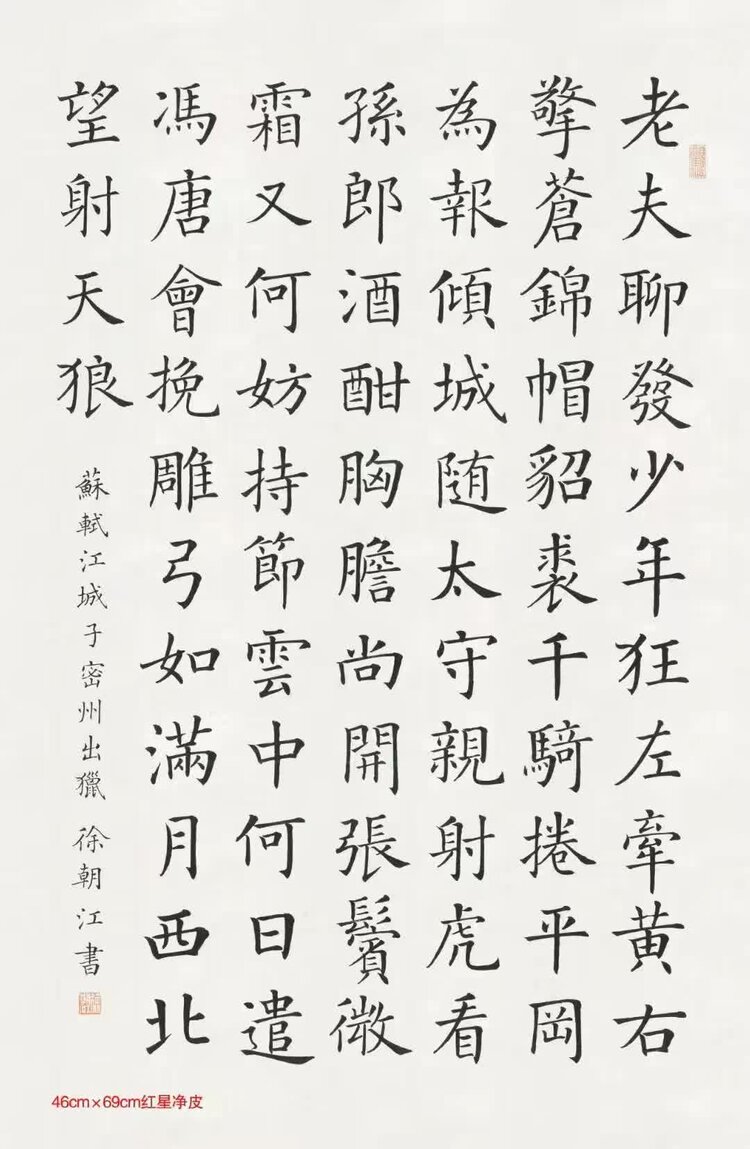 老夫聊發少年狂左牽黃右
擎蒼錦帽貂裘千騎捲平岡
為報傾城隨太守親射虎看
孫郎酒酣胸膽尚開張鬢微
霜又何妨持節雲中何日遣
馮唐會挽雕弓如滿月西北
望射天狼
蘇軾江城子密州出獵 徐朝江書
46cm×69cm红星净皮